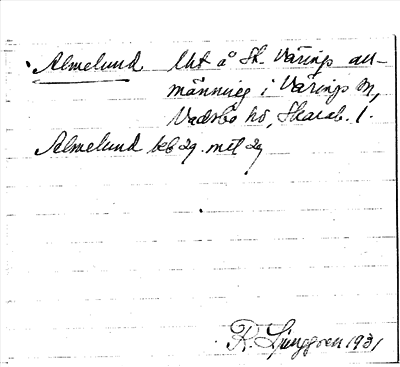 Almelund Uht å St. Värings all-
männing i Värings sn,
Vadsbo hd, Skarab. l.
Almelund beb 29. mtl 29
R. Ljunggren 1931